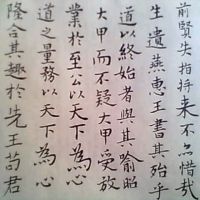 前賢失指将来不亦惜哉
生遺燕惠王書其殆乎
道以終始者與其喻昭
大甲而不疑大甲受放
業於至公以天下為心
道之量務以天下為心
隆合其趣於先王苟君